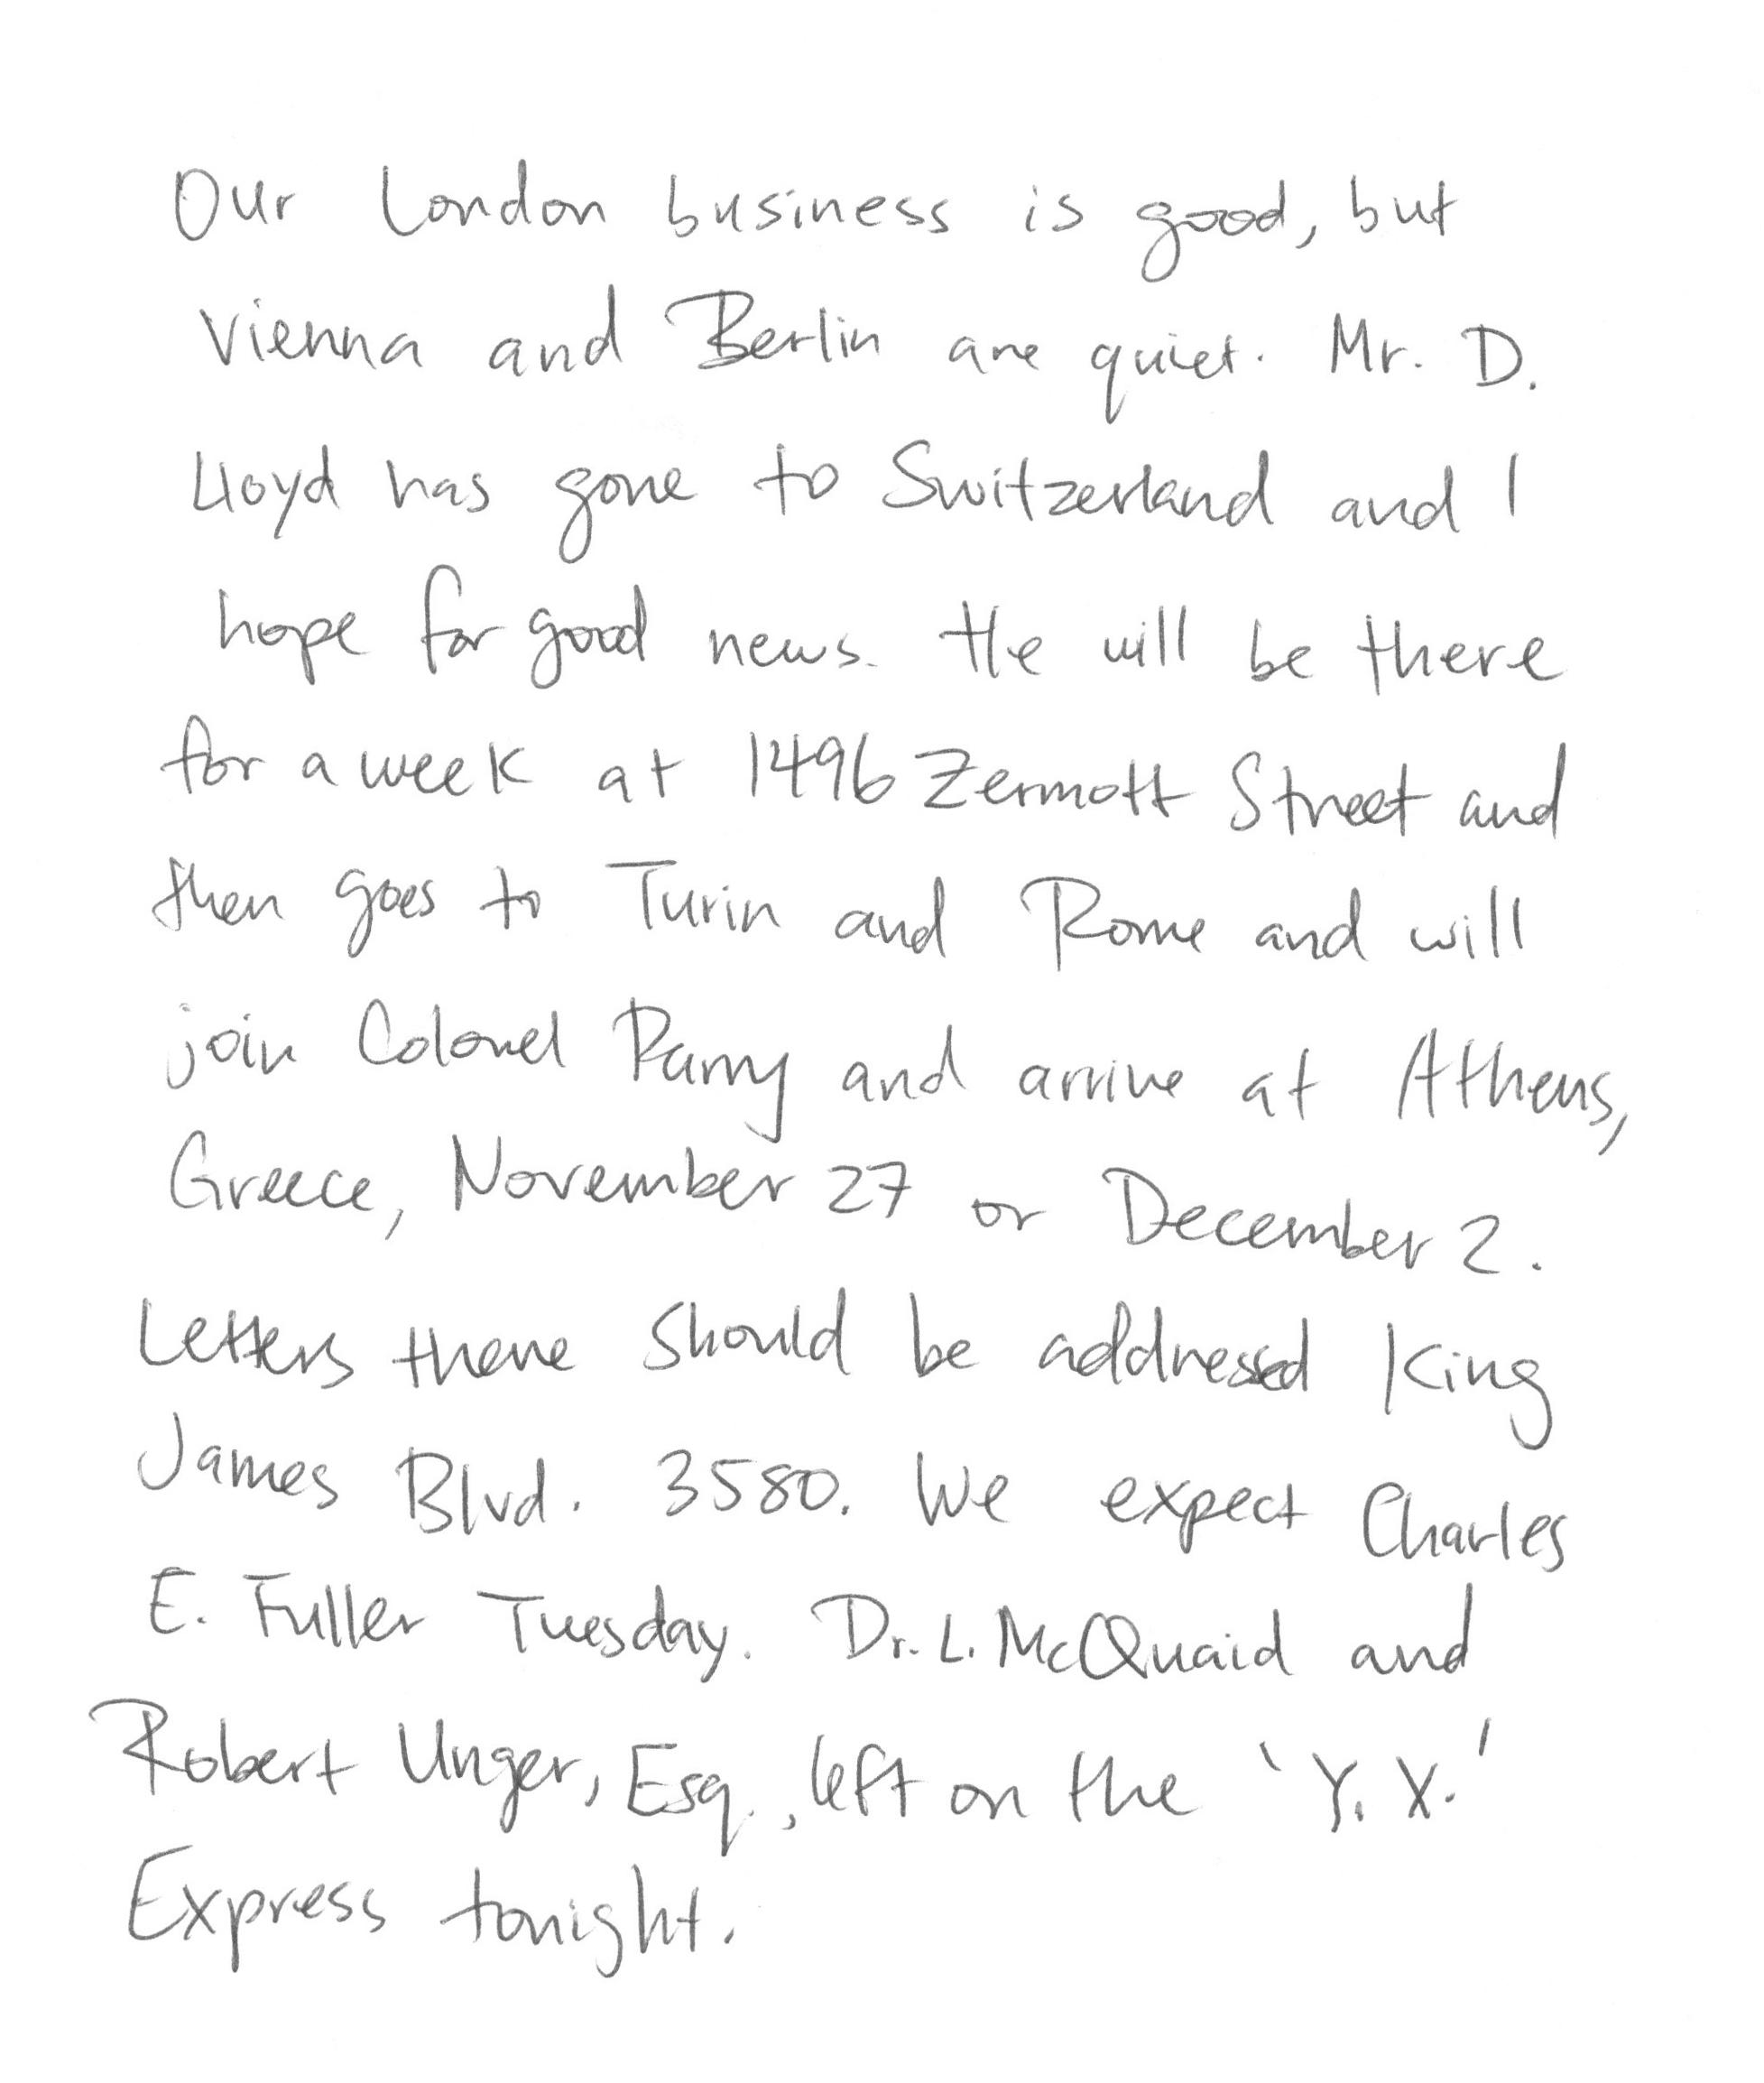 Our London business is good, but
Vienna and Berlin are quiet. Mr. D.
Lloyd has gone to Switzerland and I
hope for good news. He will be there
for a week at 1496 Zermott Street and
then goes to Turin and Rome and will
join Colonel Parry and arrive at Athens,
Greece, November 27 or December 2.
Letters there should be addressed King
James Blvd. 3580. We expect Charles
E. Fuller Tuesday. Dr. L. McQuaid and
Robert Unger, Esq., left on the 'Y. X.'
Express tonight.